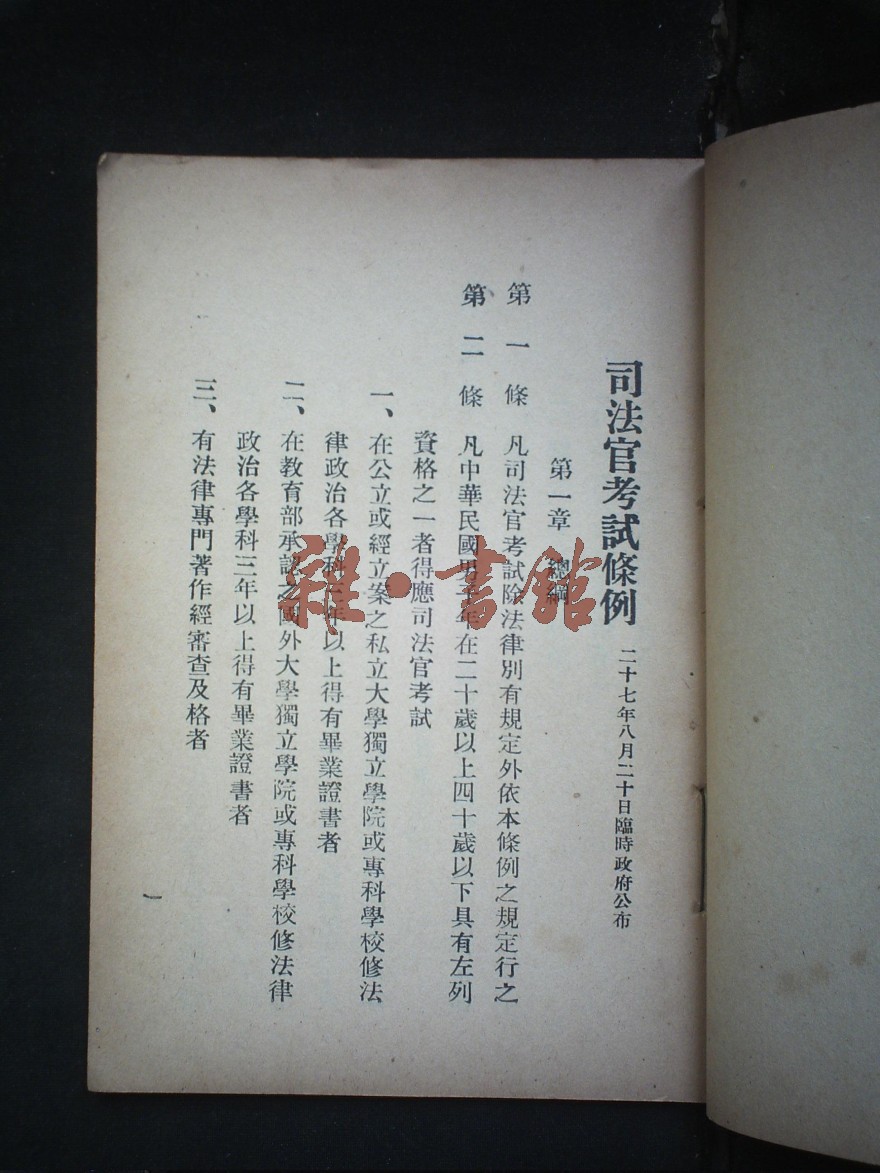 司法官考試條例
二十七年八月二十日臨時政府公布
第一章 總綱
第一條 凡司法官考試除法律別有規定外依本條例之規定行之
第二條 凡中華民國男子年在二十歲以上四十歲以下具有左列
資格之一者得應司法官考試
一、在公立或經立案之私立大學獨立學院或專科學校修法
律政治各學科三年以上得有畢業證書者
二、在教育部承認之國外大學獨立學院或專科學校修法律
政治各學科三年以上得有畢業證書者
三、有法律專門著作經審查及格者
一
雜·書館